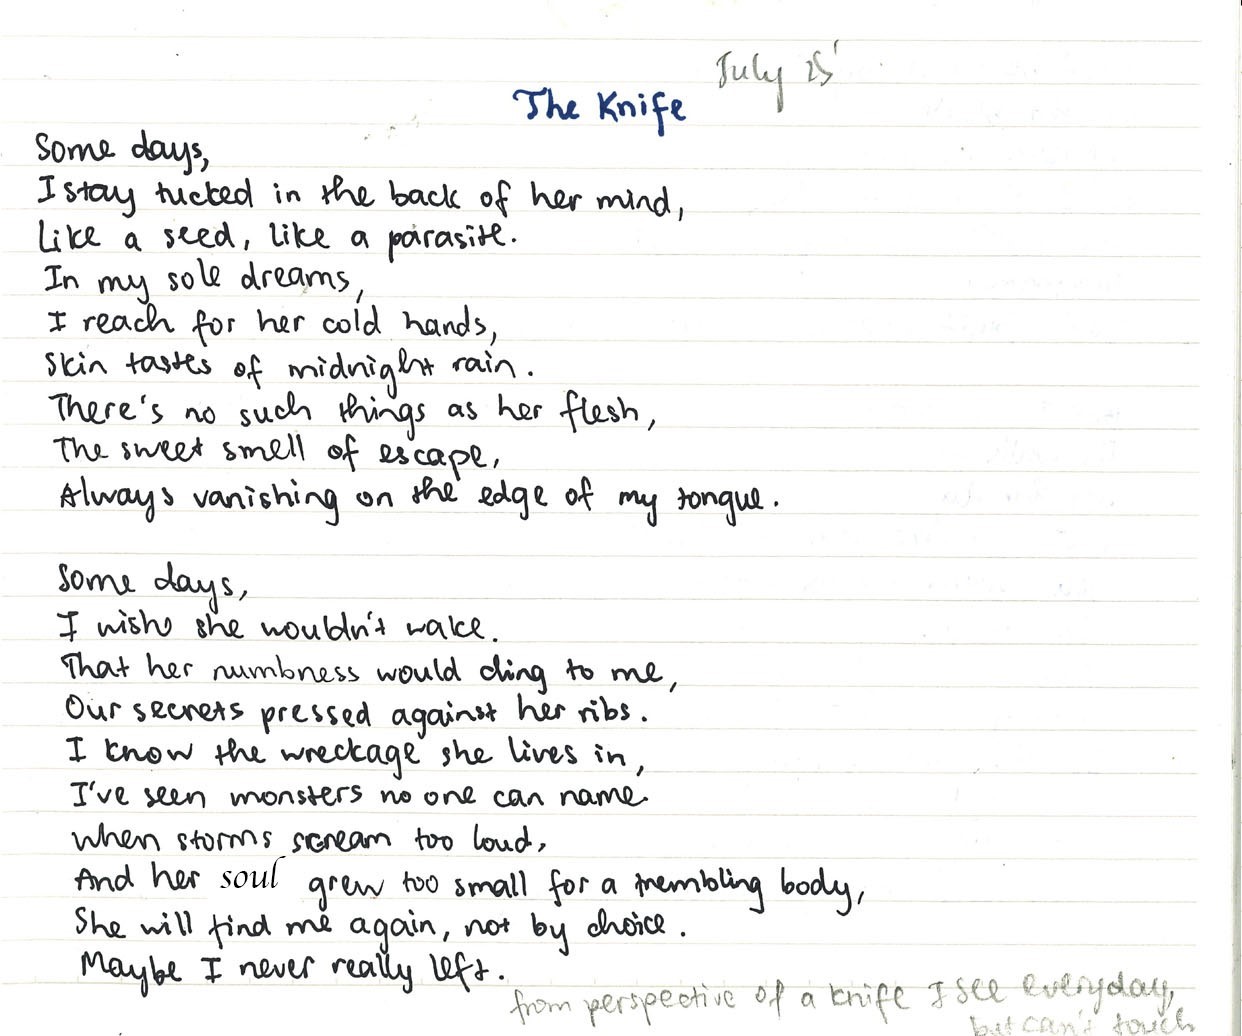 July 25'
The Knife
Some days,
I stay tucked in the back of her mind,
Like a seed, like a parasite.
In my sole dreams,
I reach for her cold hands,
Skin tastes of midnight rain.
There's no such things as her flesh,
The sweet smell of escape,
Always vanishing on the edge of my tongue.
Some days,
I wish she wouldn't wake.
That her numbness would cling to me,
Our secrets pressed against her ribs.
I know the wreckage she lives in,
I've seen monsters no one can name.
When storms scream too loud,
And her soul grew too small for a trembling body,
She will find me again, not by choice.
Maybe I never really left.
from perspective of a knife I see everyday,
but can't touch